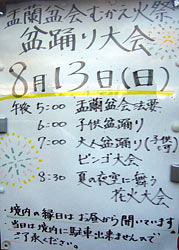 盂蘭盆会むかえ火祭
盆踊り大会
8月13日(日)
午後 5:00 盂蘭盆会法要
6:00 子供盆踊り
7:00 大人盆踊り(子供も可)
ビンゴ大会
8:30 夏の夜空に舞う
花火大会
◎境内の縁日はお昼から開いています
当日は境内に駐車出来ませんので
ご了承ください。